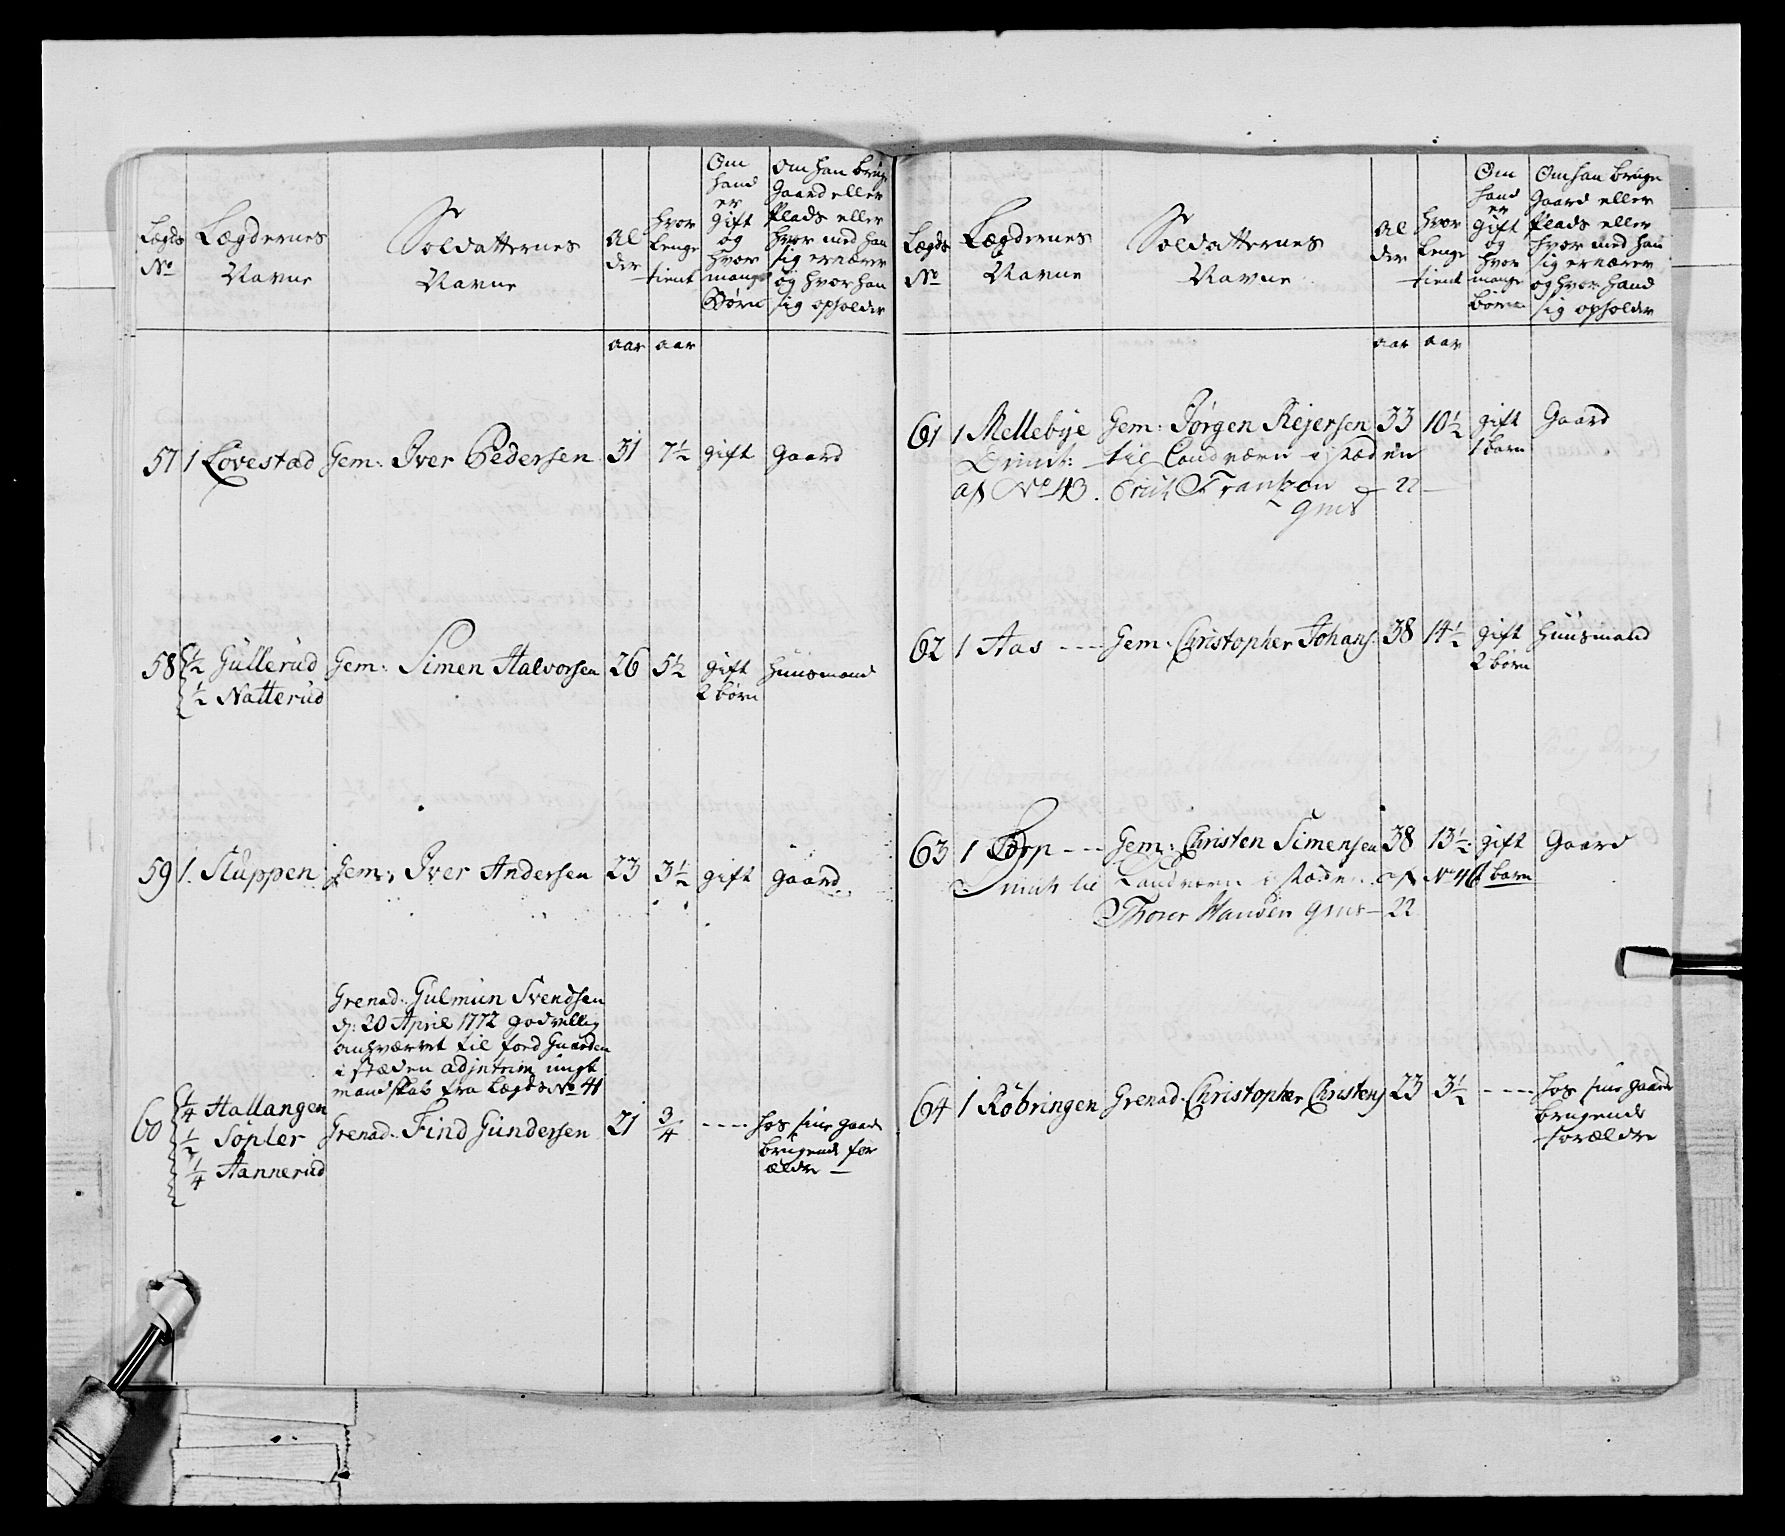 Lægds
No
Lægdernes
Navne
Soldatternes
Navne
Al
der
hvor
lenge
tient
Om
hand
er
gift
og
hvor
mange
Børn
Om han bruge
Gaard eller
Plads eller
hvor med han
sig ernærer
og hvor han
sig opholder
aar aar
57 1 Lovestad Gem: Iver Pedersen 31 7½ gift Gaard
58 ½ Gullerud Gem: Simen Halvorsen 26 5½ gift Huusmand
½ Natterud 2 børn
59 1. Sluppen Gem: Iver Andersen 23 3½ gift Gaard
Grenad: Gulmun Svendsen
d: 20 April 1772 godvillig
anhværvet til ford Guarden
i stæden adjntrim ungt
mandskab fra Lægds No 41
60 ¼ Hallangen
½ Søpler Grenad: Find Gundersen 21 ¾ ---- hos sine gaard
¼ Aannerud brugende for
ældre
Lægds
No
Lægdernes
Navne
Soldatternes
Navne
Al
der
hvor
lenge
tient
Om
hand
er
gift
og
hvor
mange
børn
Om han bruge
Gaard eller
Plads eller
hvor med han
sig ernærer
og hvor hand
sig opholder
aar aar
61 1 Mellebye Gem: Jørgen Rejersen 33 10½ gift Gaard
1 barn
til Landværn i stæden
af No 43. Frantzen 22
62 1 Aas --- Gem: Christopher Johans: 38 14½ gift Huusmand
2 børn
63 1 Dorp --- Gem: Christen Simensen 38 13½ gift Gaard
Landværn i stæden af No 46 barn
Thorer Hansen 22
64 1 Røbringen Grenad: Christopher Christens 23 3½ ---- hos sine gaard
brugende
forældre